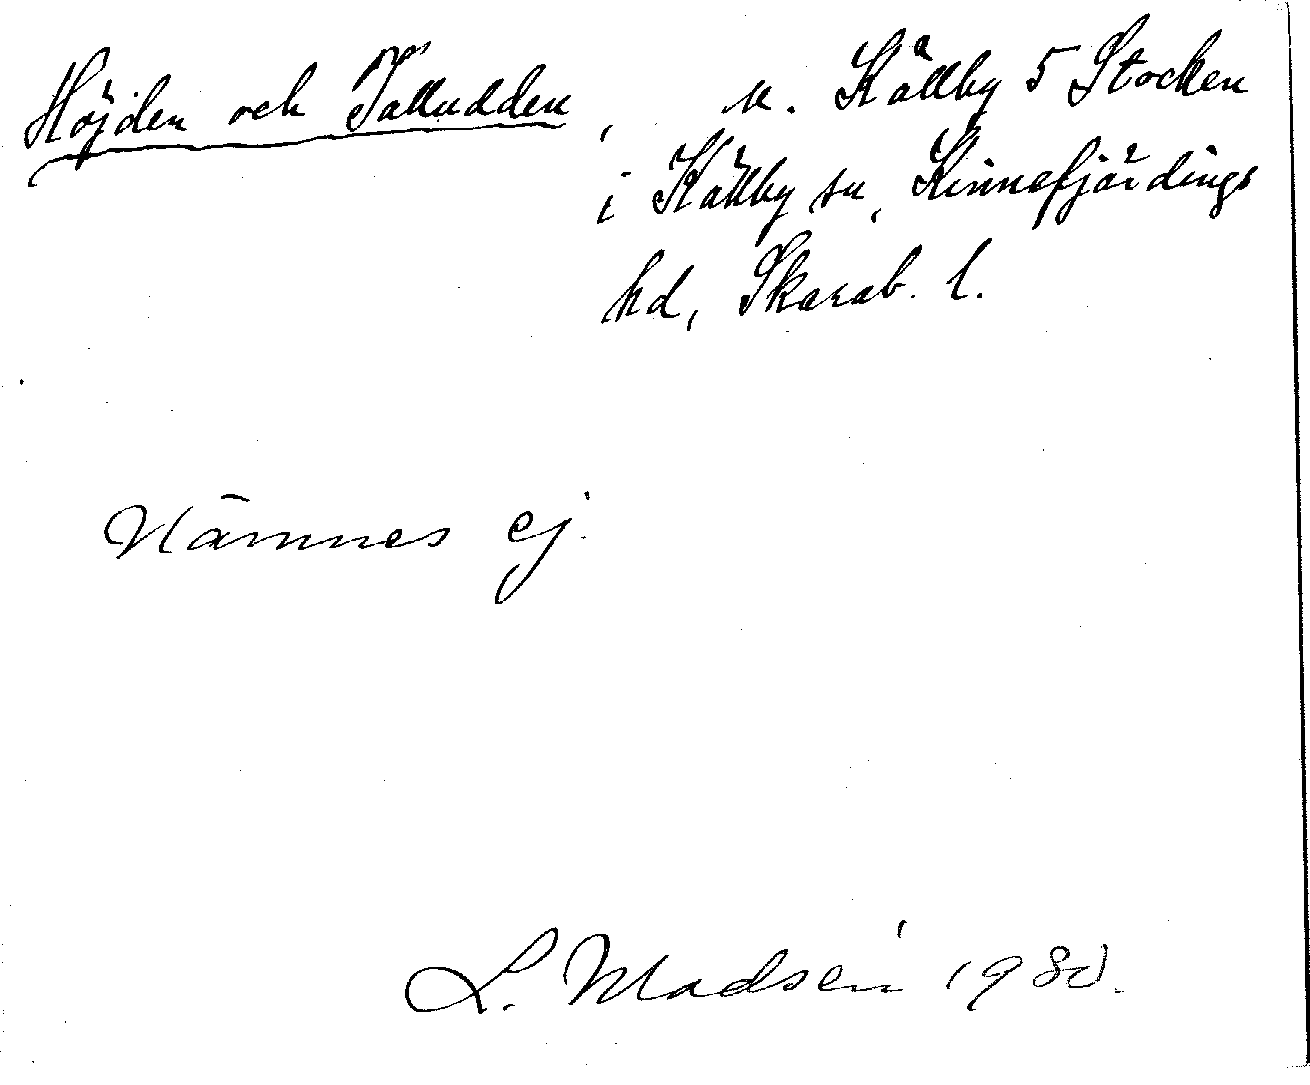 Höjden och Talludden, u. Källby 5 Stocken
i Källby sn, Kinnefjärdings
hd, Skarab. l.
Nämnes ej.
L. Madsén 1980.